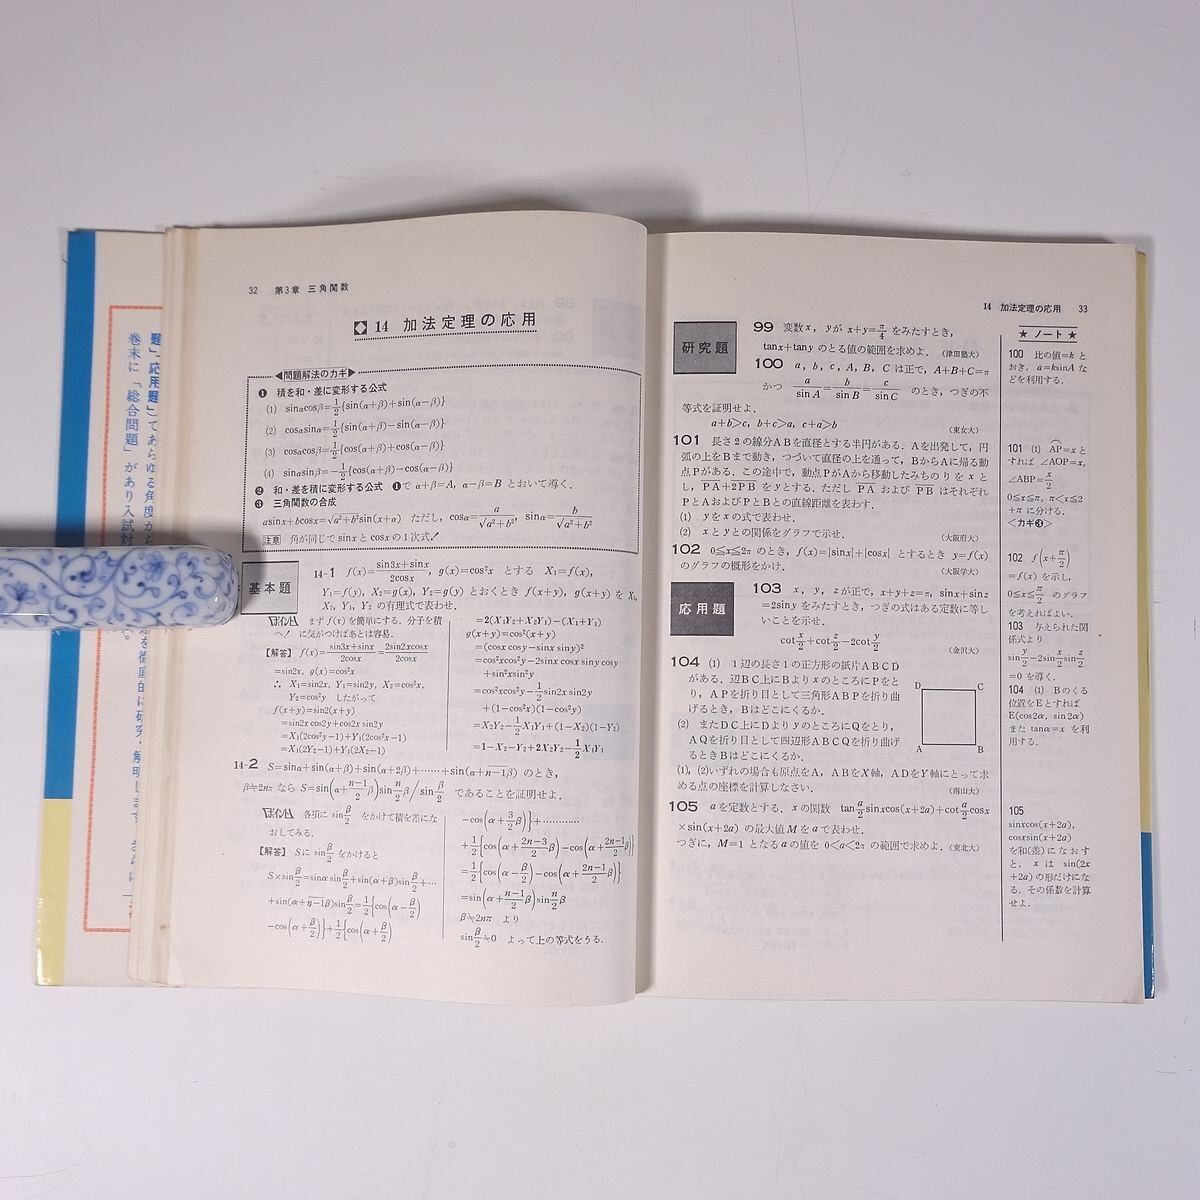 32 第3章 三角関数
◆14 加法定理の応用
◀問題解法のカギ▶
❶ 積を和・差に変形する公式
(1) sinαcosβ=1/2{sin(α+β)+sin(α−β)}
(2) cosαsinα=1/2{sin(α+β)−sin(α−β)}
(3) cosαcosβ=1/2{cos(α+β)+cos(α−β)}
(4) sinαsinβ=−1/2{cos(α+β)−cos(α−β)}
❷ 和・差を積に変形する公式 ❶で α+β=A, α−β=B とおいて導く.
❸ 三角関数の合成
asinx+bcosx=√(a²+b²)sin(x+α) ただし, cosα=a/√(a²+b²), sinα=b/√(a²+b²)
注意 角が同じで sinx と cosx の1次式!
基本題
14-1 f(x)=(sin3x+sinx)/2cosx, g(x)=cos²x とする X₁=f(x),
Y₁=f(y), X₂=g(x), Y₂=g(y) とおくとき f(x+y), g(x+y) を X₁,
X₂, Y₁, Y₂ の有理式で表わせ.
ポイント まず f(x) を簡単にする. 分子を積
へ! に気がつけばあとは容易.
【解答】 f(x)=(sin3x+sinx)/2cosx=2sin2xcosx/2cosx
=sin2x, g(x)=cos²x
∴ X₁=sin2x, Y₁=sin2y, X₂=cos²x,
Y₂=cos²y したがって
f(x+y)=sin2(x+y)
=sin2x cos2y+cos2x sin2y
=X₁(2cos²y−1)+Y₁(2cos²x−1)
=X₁(2Y₂−1)+Y₁(2X₂−1)
=2(X₁Y₂+X₂Y₁)−(X₁+Y₁)
g(x+y)=cos²(x+y)
=(cosx cosy−sinx siny)²
=cos²xcos²y−2sinx cosx siny cosy
+sin²xsin²y
=cos²xcos²y−1/2sin2x sin2y
+(1−cos²x)(1−cos²y)
=X₂Y₂−1/2X₁Y₁+(1−X₂)(1−Y₂)
=1−X₂−Y₂+2X₂Y₂−1/2X₁Y₁
14-2 S=sinα+sin(α+β)+sin(α+2β)+……+sin(α+n−1β) のとき,
β≠2nπ なら S=sin(α+(n−1)/2β)sin n/2β/sin β/2 であることを証明せよ.
ポイント 各項に sin β/2 をかけて積を差にな
おしてみる.
【解答】 Sに sin β/2 をかけると
S×sin β/2=sinα sin β/2+sin(α+β)sin β/2+…
+sin(α+n−1β)sin β/2=1/2{cos(α−β/2)
−cos(α+β/2)}+1/2{cos(α+β/2)
−cos(α+3/2β)}+…………
+1/2{cos(α+(2n−3)/2β)−cos(α+(2n−1)/2β)}
=1/2{cos(α−β/2)−cos(α+(2n−1)/2β)}
=sin(α+(n−1)/2β)sin n/2β
β≠2nπ より
sin β/2≠0 よって上の等式をうる.
14 加法定理の応用 33
研究題
99 変数x, yが x+y=π/4 をみたすとき,
tanx+tany のとる値の範囲を求めよ. (津田塾大)
100 a, b, c, A, B, C は正で, A+B+C=π
かつ a/sinA=b/sinB=c/sinC のとき, つぎの不
等式を証明せよ.
a+b>c, b+c>a, c+a>b
(東女大)
101 長さ2の線分ABを直径とする半円がある. Aを出発して, 円
弧の上をBまで動き, つづいて直径の上を通って, BからAに帰る動
点Pがある. この途中で, 動点PがAから移動したみちのりを x と
し, PA+2PB を y とする. ただし PA および PB はそれぞれ
PとAおよびPとBとの直線距離を表わす.
(1) yをxの式で表わせ.
(2) xとyとの関係をグラフで示せ. (大阪府大)
102 0≦x≦2π のとき, f(x)=|sinx|+|cosx| とするとき y=f(x)
のグラフの概形をかけ. (大阪学大)
応用題
103 x, y, zが正で, x+y+z=π, sinx+sinz
=2siny をみたすとき, つぎの式はある定数に等し
いことを示せ.
cot x/2+cot z/2−2cot y/2
(金沢大)
104 (1) 1辺の長さ1の正方形の紙片ABCD
がある. 辺BC上にBよりxのところにPをと
り, APを折り目として三角形ABPを折り曲
げるとき, Bはどこにくるか.
(2) またDC上にDよりyのところにQをとり,
AQを折り目として四辺形ABCQを折り曲げ
るときBはどこにくるか.
D C
A B
(1), (2)いずれの場合も原点をA, ABをX軸, ADをY軸にとって求
める点の座標を計算しなさい. (青山大)
105 aを定数とする. xの関数 tan a/2 sinxcos(x+2a)+cot a/2 cosx
×sin(x+2a) の最大値Mをaで表わせ.
つぎに, M=1 となるaの値を 0<a<2π の範囲で求めよ. (東北大)
★ ノート ★
100 比の値=k と
おき, a=ksinA な
どを利用する.
101 (1) AP=xと
すれば ∠AOP=x,
∠ABP=x/2
0≦x≦π, π<x≦2
+π に分ける.
<カギ❸>
102 f(x+π/2)
=f(x) を示し,
0≦x≦π/2 のグラフ
を考えればよい.
103 与えられた関
係式より
sin y/2−2sin x/2 sin z/2
=0 を導く.
104 (1) Bのくる
位置をEとすれば
E(cos2α, sin2α)
また tanα=x を利
用する.
105
sinxcos(x+2a),
cosxsin(x+2a)
を和(差)になおす
と, xは sin(2x
+2a) の形だけにな
る. その係数を計算
せよ.
題」、応用題」であらゆる角度から
巻末に「総合問題」があり入試対
を徹底的に研究・解明します。